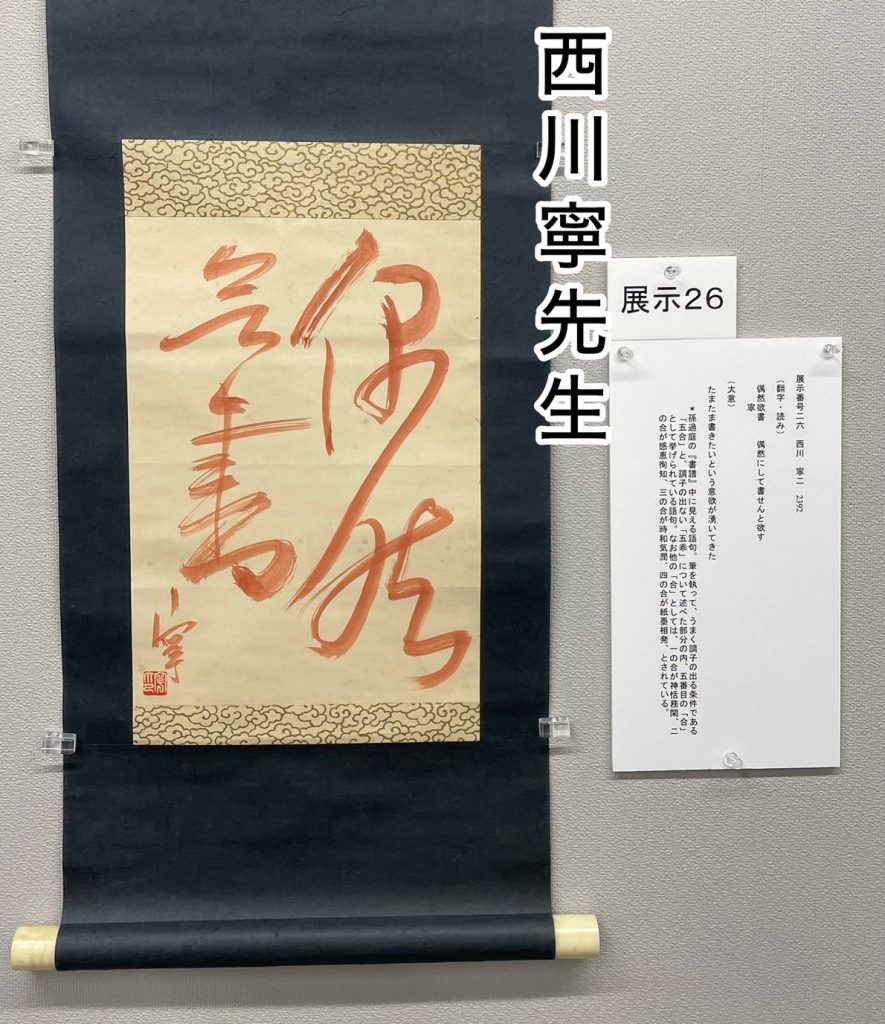 西川寧先生
偶然
欲書
寧
展示26
展示番号二六　西川　寧二　2392
（翻字・読み）
偶然欲書　偶然にして書せんと欲す
寧
（大意）
たまたま書きたいという意欲が湧いてきた
＊孫過庭の『書譜』中に見える語句。筆を執って、うまく調子の出る条件である
「五合」と、調子の出ない「五乖」について述べた部分の内、五番目の「合」
として挙げられている語句。なお他の「合」としては、一の合が神恬務閑、二
の合が感恵徇知、三の合が時和気潤、四の合が紙墨相発、とされている。